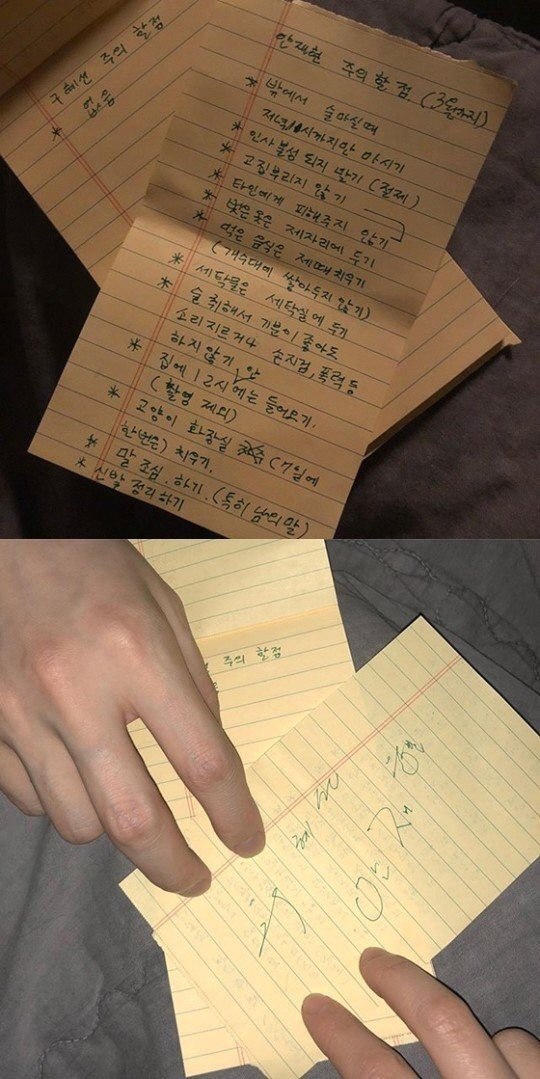 구혜선 주의 할 점
* 없음
안재현 주의할 점 (3월까지)
* 밖에서 술마실때
저녁 11시까지만 마시기
* 인사불성 되지 말기 (절제)
* 고집부리지 않기
* 타인에게 피해주지 않기
* 벗은옷은 제자리에 두기
* 먹은 음식은 제때 치우기
(개수대에 쌓아두지 않기)
* 세탁물은 세탁실에 두기
* 술 취해서 기분이 좋아도
소리지르거나 손지검, 폭력 등
하지않기
* 집에 12시 안에는 들어오기.
(촬영 제외)
* 고양이 화장실 (7일에
한번은) 치우기.
* 말 조심. 하기. (특히 남의 말)
* 신발 정리하기
주의 할 점
구혜선
안재현